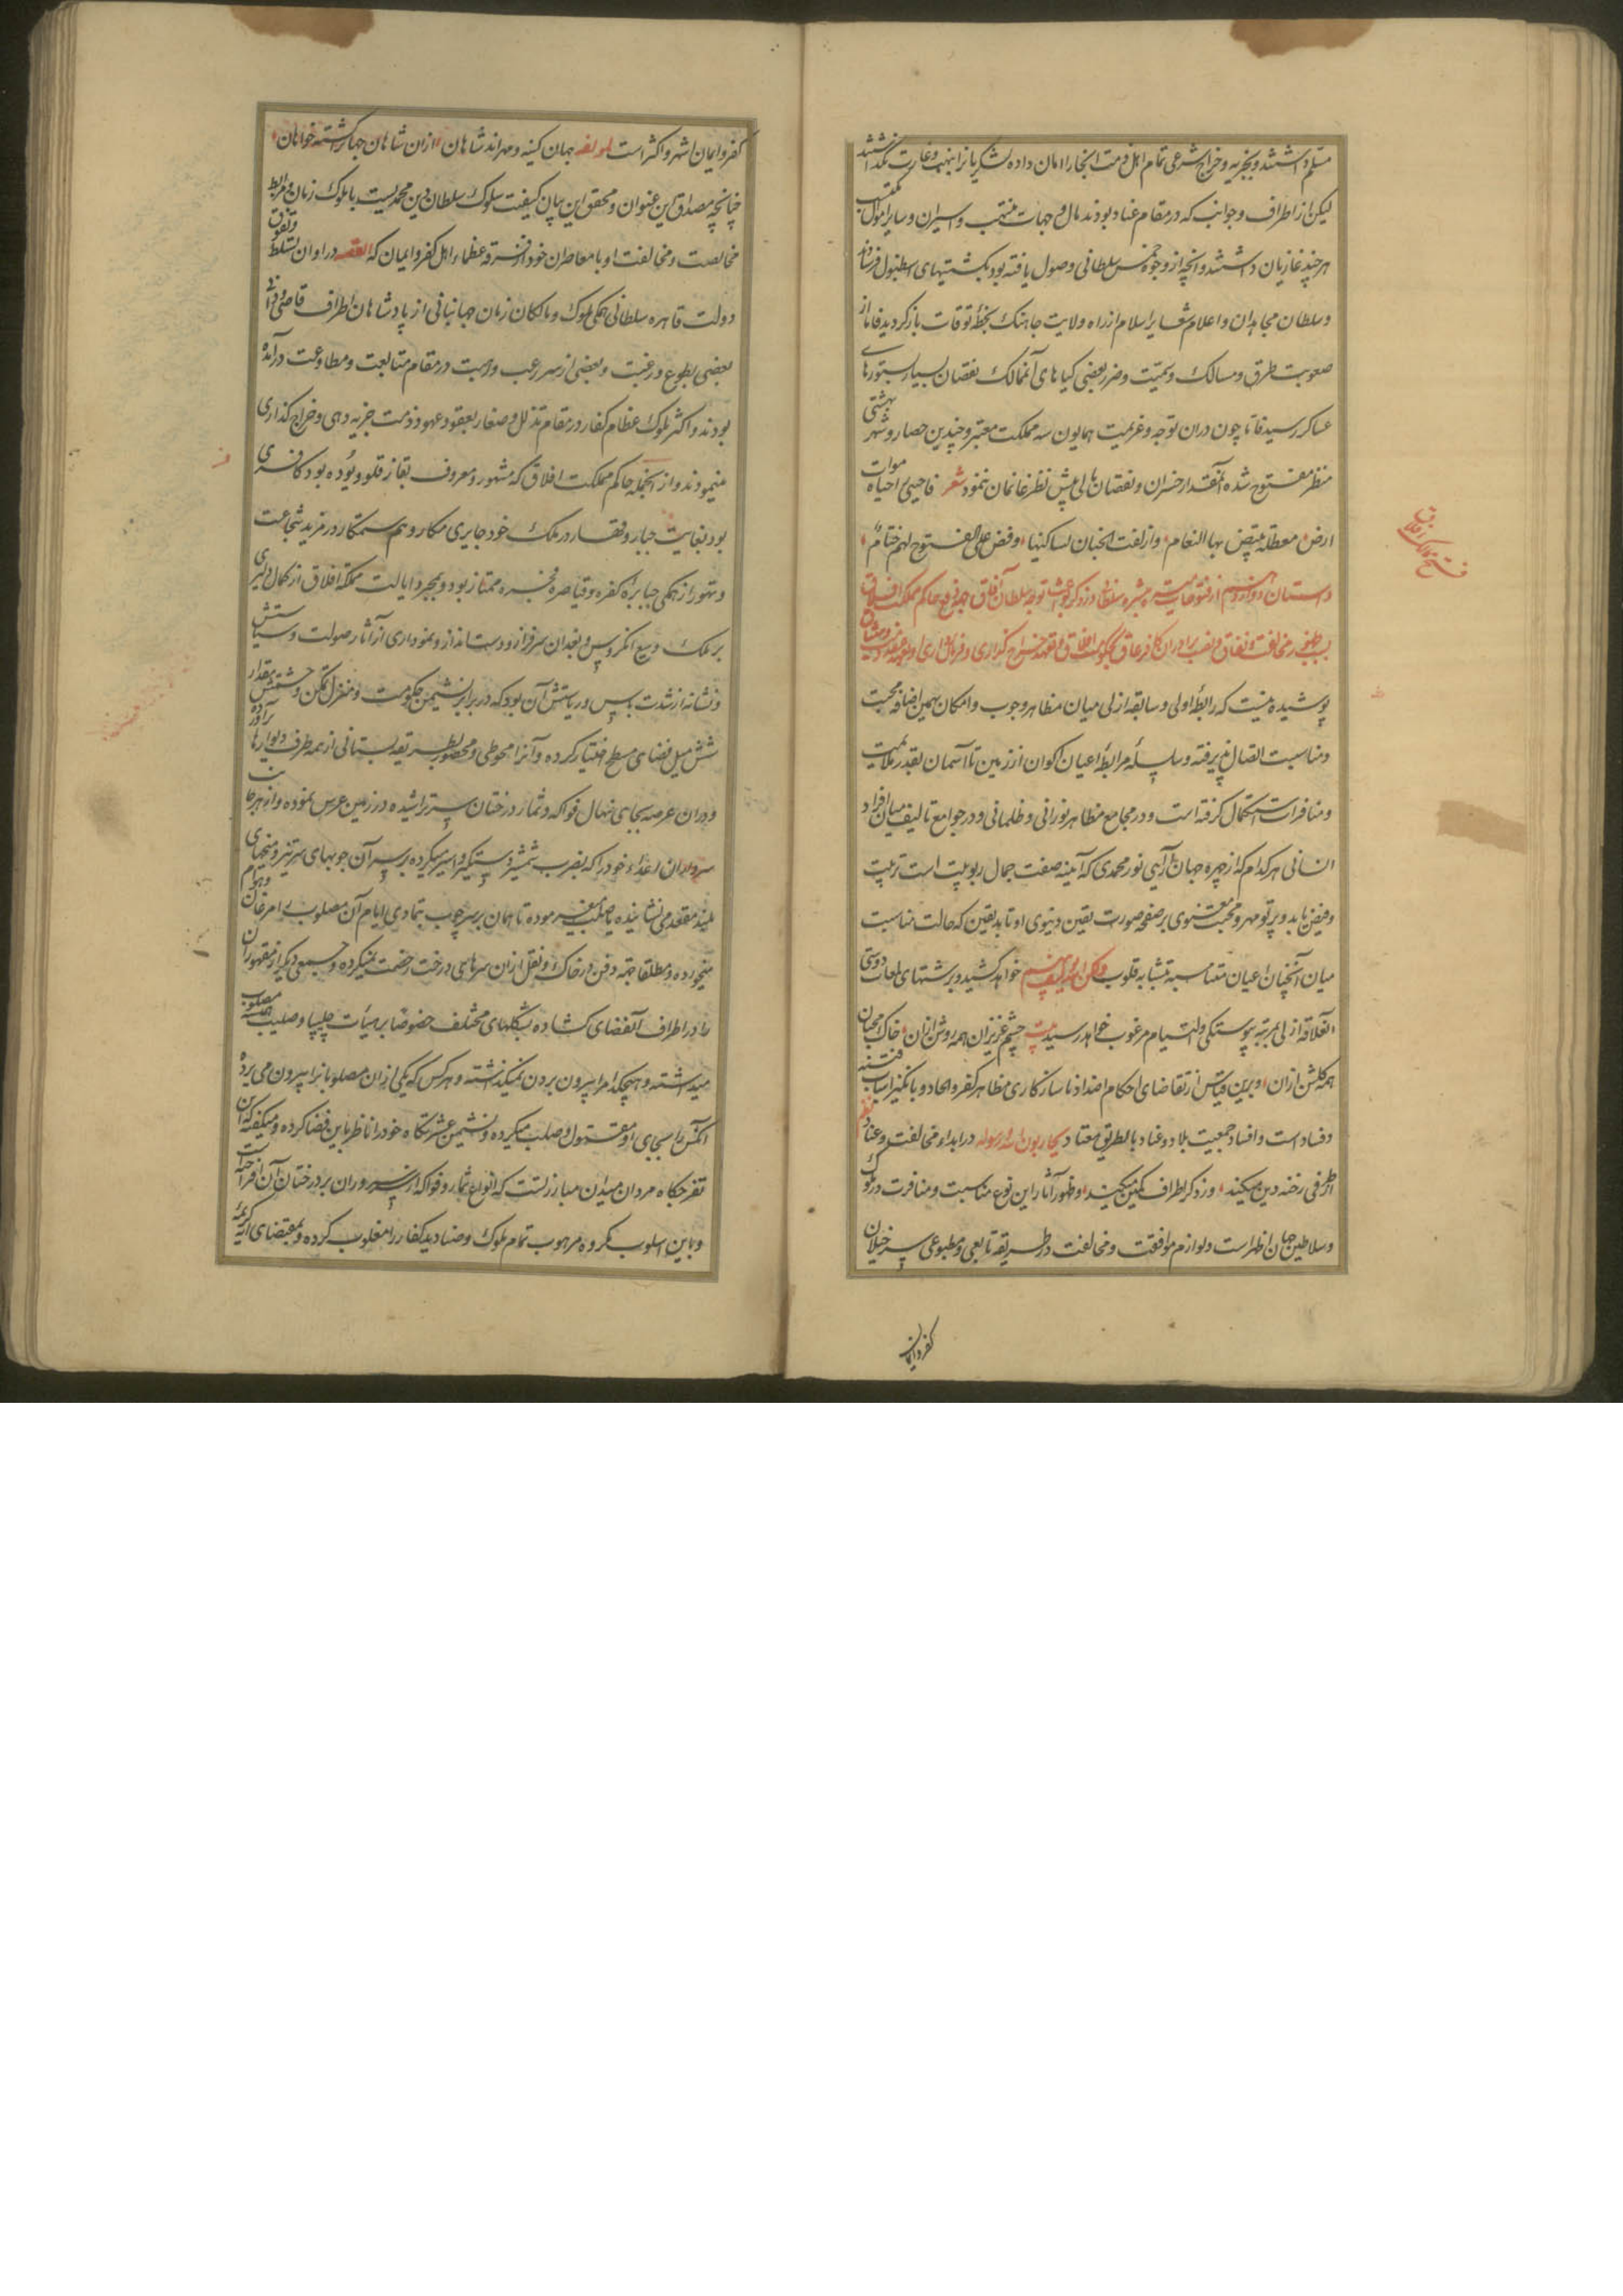 مسلم داشتند و بجزیه و خراج شرعی تمام اهل ذمت آنجا را امان داده لشکریانرا بنهب و غارت نگذاشتند
لیکن از اطراف و جوانب که در مقام عناد بودند مال و جهات منتهب و اسیران و سایر اموال مکتسب
هر چند غازیان داشتند و آنچه از وجوه خمس سلطانی وصول یافته بود بکشتیهای اسطنبول فرستادند
و سلطان مجاهدان و اعلام شعایر اسلام از راه ولایت جانیک بخطهٔ توقات بازگردید فاما از
صعوبت طرق و مسالک و سمیّت و ضرر بعضی گیاهای آنممالک نقصان بسیار بستورهای
عساکر رسید فاما چون دران توجه و عزیمت همایون سه مملکت معتبر و چندین حصار و شهر بهشتی
منظر مفتوح شده آنمقدار خسران و نقصان مالی پیش نظر غانمان ننمود شعر فاحیی باحیاه موات
ارض معطلة بها النعام وازلفت الجنان لساکنیها وفض علی الفتوح لهم ختام
داستان دوازدهم از فتوحات سلطان در ذکر توجه سلطان آفاق بدفع حاکم مملکت افلاق
مخالفت و نفاق و نصب برادران کافر عاق بحکومت افلاق و تعهد خراج گذاری و فرمانبرداری
پوشیده نیست که رابطهٔ اولی و سابقهٔ ازلی میان مظاهر وجوب و امکان بهمین اضافهٔ محبت
و مناسبت اتصال پذیرفته و سلسلهٔ مرابطهٔ اعیان اکوان از زمین تا آسمان بقدر ملایمت
و منافرات استکمال گرفته است و در مجامع مظاهر نورانی و ظلمانی و در جوامع تالیف میان افراد
انسانی هر کدام که از چهره جهان آرای نور محمدی که آیینه صفت جمال ربوبیت است تربیت
و فیض یابد و پرتو مهر و محبت معنوی بر صفحه صورت یقین دنیوی او تابد یقین که حالت مناسبت
میان آنچنان اعیان متناسبه متشابه قلوب ولکن الله الف بینهم خواهد کشید و برشتهای لمعات دوستی
آنعلاقه ازلی بمرتبه پیوستگی و التیام مرغوب خواهد رسید بیت چشم عزیزان همه روشن ازان خاک محبان
همه گلشن ازان و برین قیاس از تقاضای احکام اضداد ناسازگاری مظاهر کفر و الحاد و بانگیز اسباب فتنه
و فساد است و افساد جمعیت بلاد و عباد بالطریق معتاد یحاربون الله ورسوله در ابداء مخالفت و عناد نظر
از طرفی رخنه دین میکنند وز دگر اطراف کمین میکنند و ظهور آثار این نوع مناسبت و منافرت در ملوک
و سلاطین جهان اظهر است و لوازم موافقت و مخالفت در طریقه تابعی و مطبوعی سرخیلان
کفر و ایمان
فتح ممالک افلاق
کفر و ایمان اشهر و اکثر است لمولفه جهان کینه و مهرانند شاهان ازان شاهان جهان را گشته خواهان
چنانچه مصداق این عنوان و محقق این بیان کیفیت سلوک سلطان دین محمدیست با ملوک زمان و مرابط
مخالصت و مخالفت او با معاصران خود از فرقه عظماء اهل کفر و ایمان که القصه در اوان تسلط و تفوق
دولت قاهره سلطانی همگی ملوک و مالکان زمان جهانبانی از پادشاهان اطراف قاصی و دانی
بعضی بطوع و رغبت و بعضی از سر رعب و رهبت در مقام متابعت و مطاوعت درآمده
بودند و اکثر ملوک عظام کفار در مقام تذلل و صغار بعقود عهود و ذمت جزیه دهی و خراج گذاری
مینمودند و از آنجمله حاکم مملکت افلاق که مشهور و معروف بقازقلو ویوده بود کافری
بود بغایت جبار و قهار در ملک خود جایری مکار و هم ستمکار در مزید شجاعت
و تهور از همگی جبابرهٔ کفره و قیاصره فجره ممتاز بود و بمجرد ایالت مملکه افلاق از کمال دلیری
بر ملک وسیع انگروس و بغدان سرافراز و دست انداز و نموداری از آثار صولت و سیاستش
و نشانه از شدت باس و ریاستش آن بود که در برابر نشیمن حکومت و منزل تمکن و حشمتش مقدار
شش میل فضای مسطح اختیار کرده و آنرا محوطی و محصور بطریقه بستانی از همه طرف دیوارها برآورده
و دران عرصه بجای نهال فواکه و ثمار درختان ستبر تراشیده در زمین غرس نموده و از هر جانب
سروران اعداء خود را که بضرب شمشیر دستگیر و اسیر میکرده بر سر آن چوبهای سرتیز و میخهای
بلند مقعد می نشانیده یا صلب میفرموده تا همان بر سر چوب بتمادی ایام آن مصلوب را مرغان و هوام
میخورده و مطلقا بتهٔ دفن در خاک و نقل ازان سرهای درخت رخصت نمیکرده و جمعی دیگر از مقهوران
را در اطراف آنفضای گشاده بشکلهای مختلف خصوصا بر هیأت چلیپا و صلیب همه مصلوب
میداشته و هیچکدام را بیرون بردن نمیگذاشته و هر کس که یکی ازان مصلوبانرا بیرون می برده
آنکس را بجای او مقتول و صلب میکرده و نشیمن عشرتگاه خود را ناظر باین فضا کرده و میگفته که این
تفرجگاه مردان میدان مبارزتست که انواع ثمار و فواکه از سر سروران بر درختان آن افراخته است
و باین اسلوب مکروه مرهوب تمام ملوک و صنادید کفار را مغلوب کرده و بمقتضای آیه کریمه